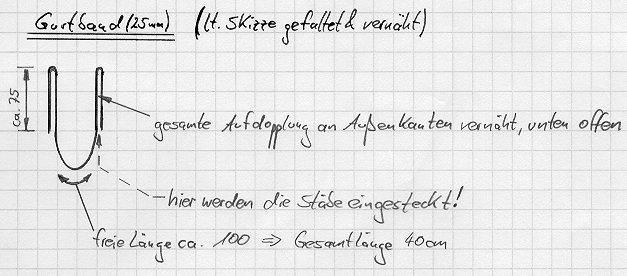 Gurtband (25mm) (lt. Skizze gefaltet & vernäht)
ca. 75
gesamte Aufdopplung an Außenkanten vernäht, unten offen
hier werden die Stäbe eingesteckt!
freie Länge ca. 100 ⇒ Gesamtlänge 40cm